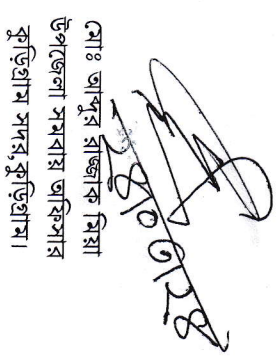 ২৪০৭২৪
মোঃ আব্দুর রাজ্জাক মিয়া
উপজেলা সমবায় অফিসার
কুড়িগ্রাম সদর, কুড়িগ্রাম।